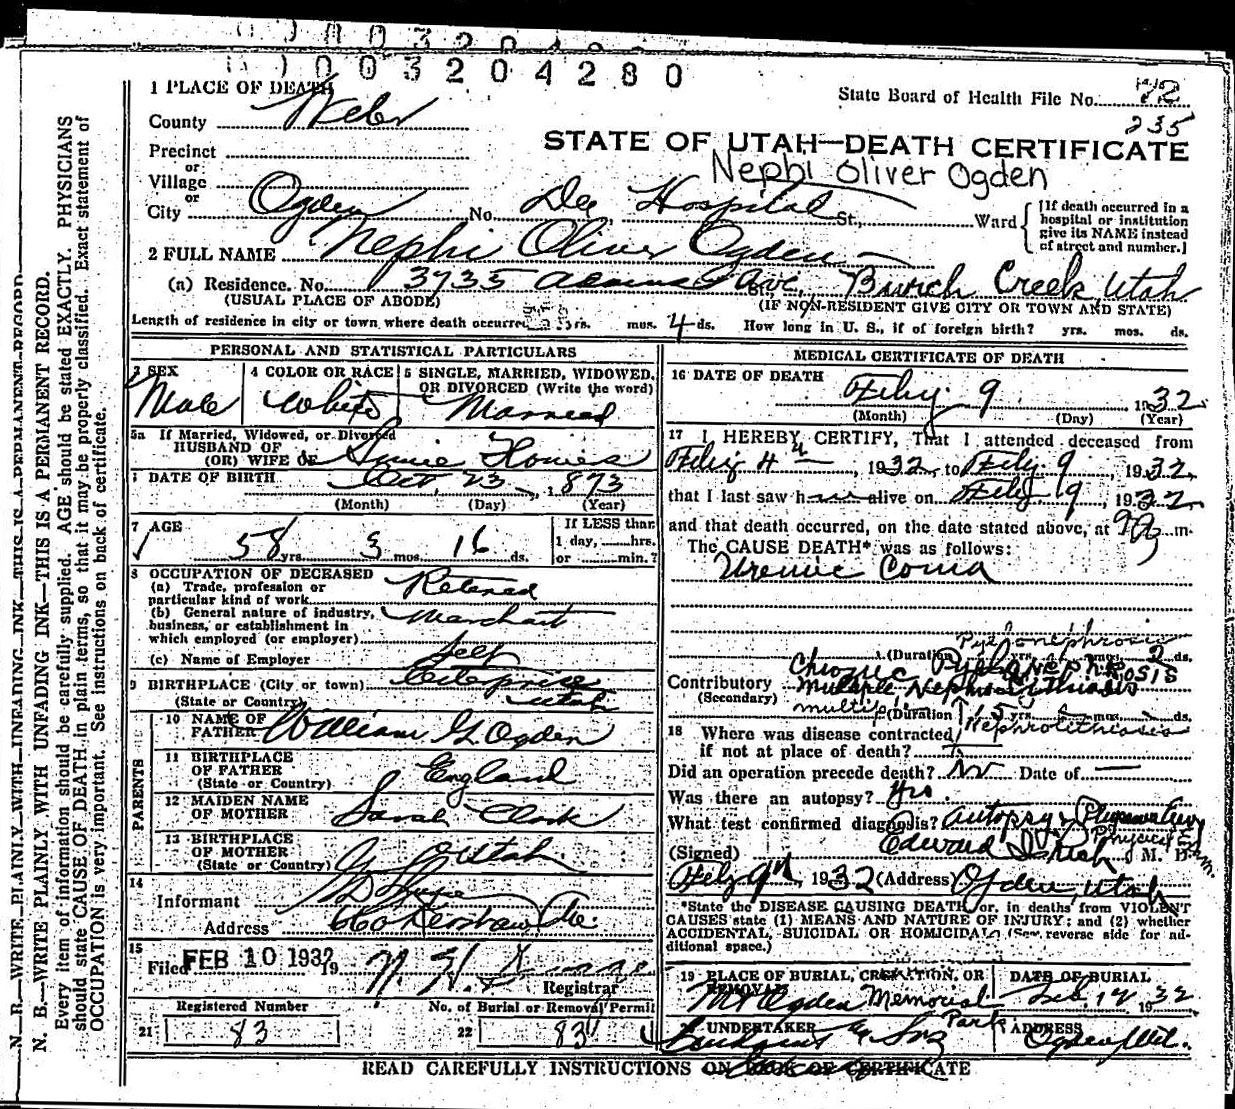 0003204280
1 PLACE OF DEATH
State Board of Health File No. 72
235
County Weber
STATE OF UTAH—DEATH CERTIFICATE
Precinct
or
Village
or
Nephi Oliver Ogden
City Ogden No. Dee Hospital St., Ward
[If death occurred in a hospital or institution give its NAME instead of street and number.]
2 FULL NAME Nephi Oliver Ogden
(a) Residence. No. 3735 Adams Ave, Burch Creek, Utah
(USUAL PLACE OF ABODE) (IF NON-RESIDENT GIVE CITY OR TOWN AND STATE)
Length of residence in city or town where death occurred yrs. mos. 4 ds. How long in U. S., if of foreign birth? yrs. mos. ds.
PERSONAL AND STATISTICAL PARTICULARS
3 SEX
Male
4 COLOR OR RACE
White
5 SINGLE, MARRIED, WIDOWED, OR DIVORCED (Write the word)
Married
5a If Married, Widowed, or Divorced
HUSBAND OF
(OR) WIFE OF
DATE OF BIRTH Oct, 23, 1873
(Month) (Day) (Year)
7 AGE
58 yrs. 3 mos. 16 ds.
If LESS than
1 day, hrs.
or min.?
8 OCCUPATION OF DECEASED
(a) Trade, profession or
particular kind of work Retired
(b) General nature of industry,
business, or establishment in
which employed (or employer) Merchant
(c) Name of Employer Self
9 BIRTHPLACE (City or town) Enterprise
(State or Country) Utah
PARENTS
10 NAME OF
FATHER William G Ogden
11 BIRTHPLACE
OF FATHER
(State or Country) England
12 MAIDEN NAME
OF MOTHER Sarah Clark
13 BIRTHPLACE
OF MOTHER
(State or Country) Utah
14
Informant
Address
15
Filed FEB 10 1932 19
Registrar
Registered Number
21 83
No. of Burial or Removal Permit
22 83
MEDICAL CERTIFICATE OF DEATH
16 DATE OF DEATH Feby 9 1932
(Month) (Day) (Year)
17 I HEREBY CERTIFY, That I attended deceased from
Feby 4th, 1932, to Feby 9, 1932,
that I last saw h alive on Feby 9, 1932
and that death occurred, on the date stated above, at m.
The CAUSE DEATH* was as follows:
Uremic Coma
Pyelonephrosis
(Duration yrs. mos. 2 ds.
Contributory Chronic Pyelonephrosis
(Secondary) Multiple Nephrolythiasis
multiple (Duration 15 yrs. mos. ds.
Nephrolithiasis
18 Where was disease contracted,
if not at place of death?
Did an operation precede death? No Date of —
Was there an autopsy? Yes.
What test confirmed diagnosis? Autopsy &
Physical Exam.
(Signed) Edward I Rich M. D.
Feby 9th, 1932 (Address) Ogden, Utah
*State the DISEASE CAUSING DEATH, or, in deaths from VIOLENT
CAUSES state (1) MEANS AND NATURE OF INJURY; and (2) whether
ACCIDENTAL, SUICIDAL OR HOMICIDAL. (See reverse side for ad-
ditional space.)
19 PLACE OF BURIAL, CREMATION, OR
REMOVAL
Mt Ogden Memorial Park
DATE OF BURIAL
Feb. 12 1932
UNDERTAKER
& Son
ADDRESS
Ogden, Ut.
READ CAREFULLY INSTRUCTIONS ON BACK OF CERTIFICATE
N. B.—WRITE PLAINLY WITH UNFADING INK—THIS IS A PERMANENT RECORD.
N. B.—WRITE PLAINLY WITH UNFADING INK—THIS IS A PERMANENT RECORD.
Every item of information should be carefully supplied. AGE should be stated EXACTLY. PHYSICIANS
should state CAUSE OF DEATH in plain terms, so that it may be properly classified. Exact statement of
OCCUPATION is very important. See instructions on back of certificate.